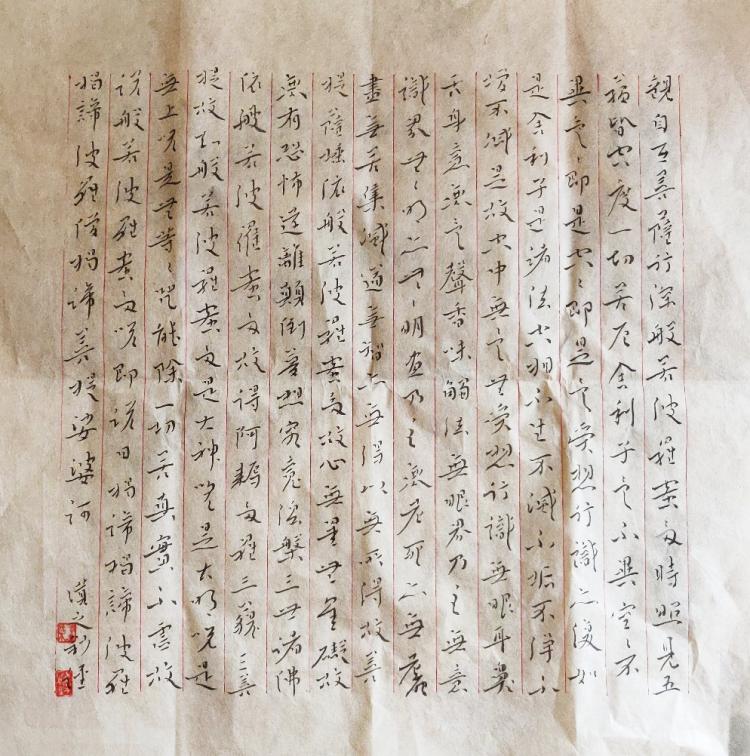 觀自在菩薩行深般若波羅蜜多時照見五
蘊皆空度一切苦厄舍利子色不異空〻不
異色〻即是空〻即是色受想行識亦復如
是舍利子是諸法空相不生不滅不垢不淨不
增不減是故空中無色无受想行識無眼耳鼻
舌身意無色聲香味觸法無眼界乃至無意
識界无〻明亦无〻明盡乃至無老死亦無老死
盡無苦集滅道無智亦無得以無所得故菩
提薩埵依般若波羅蜜多故心無罣无罣礙故
無有恐怖遠離顛倒夢想究竟涅槃三世諸佛
依般若波羅蜜多故得阿耨多羅三藐三菩
提故知般若波羅蜜多是大神咒是大明咒是
無上咒是无等〻咒能除一切苦真實不虛故
說般若波羅蜜多咒即說曰揭諦揭諦波羅
揭諦波羅僧揭諦菩提娑婆訶